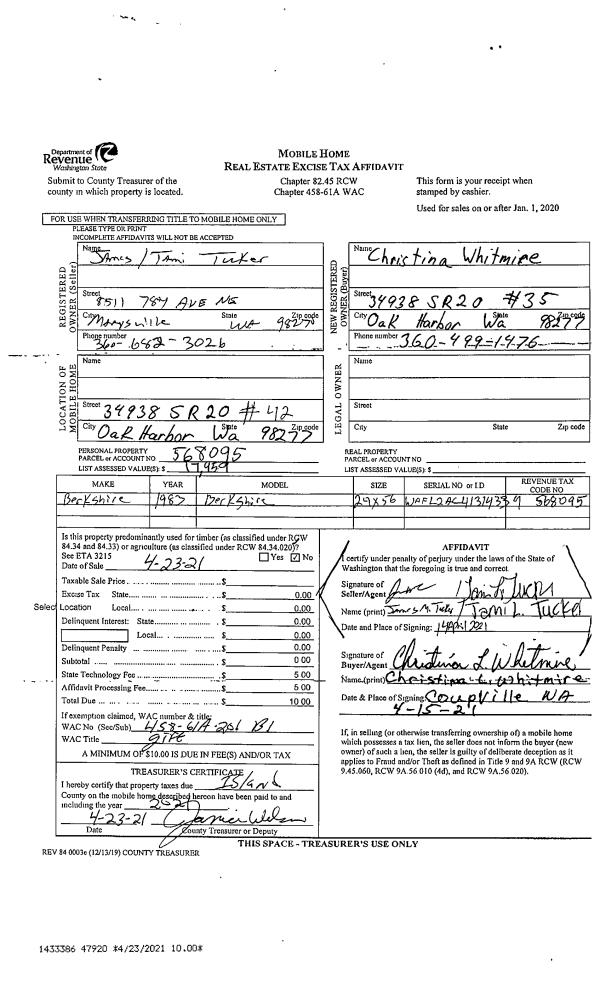 Department of
Revenue
Washington State
Submit to County Treasurer of the
county in which property is located.
MOBILE HOME
REAL ESTATE EXCISE TAX AFFIDAVIT
Chapter 82.45 RCW
Chapter 458-61A WAC
This form is your receipt when
stamped by cashier.
Used for sales on or after Jan. 1, 2020
FOR USE WHEN TRANSFERRING TITLE TO MOBILE HOME ONLY
PLEASE TYPE OR PRINT
INCOMPLETE AFFIDAVITS WILL NOT BE ACCEPTED
REGISTERED
OWNER (Seller)
Name James / Tami Tucker
Street 8511 78th AVE NE
City Marysville State WA Zip code 98270
Phone number 360-682-3026
NEW REGISTERED
OWNER (Buyer)
Name Christina Whitmire
Street 34938 SR20 #35
City Oak Harbor State Wa Zip code 98277
Phone number 360-499-1476
LOCATION OF
MOBILE HOME
Name
Street 34938 SR20 #42
City Oak Harbor State Wa Zip code 98277
LEGAL OWNER
Name
Street
City State Zip code
PERSONAL PROPERTY
PARCEL or ACCOUNT NO 568095
LIST ASSESSED VALUE(S): $ 17,959
REAL PROPERTY
PARCEL or ACCOUNT NO
LIST ASSESSED VALUE(S): $
MAKE YEAR MODEL SIZE SERIAL NO or I.D REVENUE TAX CODE NO
Berkshire 1987 Berkshire 29X56 568095
Is this property predominantly used for timber (as classified under RCW
84.34 and 84.33) or agriculture (as classified under RCW 84.34.020)?
See ETA 3215 Yes No
Date of Sale 4-23-21
Taxable Sale Price $
Excise Tax State $ 0.00
Select Location Local $ 0.00
Delinquent Interest: State $ 0.00
Local $ 0.00
Delinquent Penalty $ 0.00
Subtotal $ 0 00
State Technology Fee $ 5 00
Affidavit Processing Fee $ 5 00
Total Due $ 10 00
If exemption claimed, WAC number & title:
WAC No (Sec/Sub) 458-61A-201 B1
WAC Title gift
A MINIMUM OF $10.00 IS DUE IN FEE(S) AND/OR TAX
TREASURER'S CERTIFICATE
I hereby certify that property taxes due Island
County on the mobile home described hereon have been paid to and
including the year 2021
4-23-21
Date County Treasurer or Deputy
AFFIDAVIT
I certify under penalty of perjury under the laws of the State of
Washington that the foregoing is true and correct.
Signature of
Seller/Agent Tami L Tucker
Name (print) James M. Tucker / Tami L. Tucker
Date and Place of Signing: 14APR2021
Signature of
Buyer/Agent Christina L. Whitmire
Name.(print) Christina L. Whitmire
Date & Place of Signing Coupville WA
4-15-21
If, in selling (or otherwise transferring ownership of) a mobile home
which possesses a tax lien, the seller does not inform the buyer (new
owner) of such a lien, the seller is guilty of deliberate deception as it
applies to Fraud and/or Theft as defined in Title 9 and 9A RCW (RCW
9.45.060, RCW 9A 56 010 (4d), and RCW 9A.56.020).
THIS SPACE - TREASURER'S USE ONLY
REV 84 0003e (12/13/19) COUNTY TREASURER
1433386 47920 *4/23/2021 10.00*